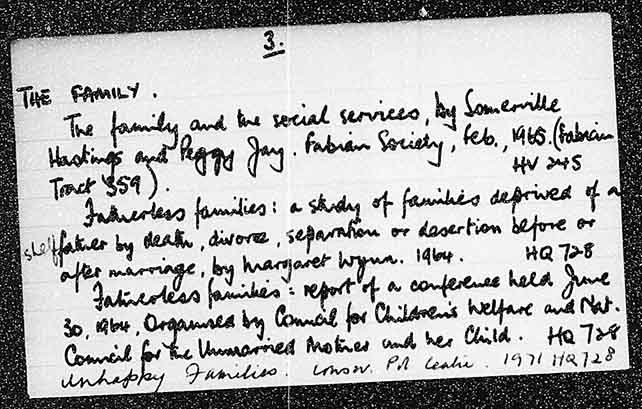 3.
THE FAMILY.
The family and the social services, by Somerville
Hastings and Peggy Jay. Fabian Society, Feb., 1965. (Fabian
Tract 359). HV 245
Fatherless families: a study of families deprived of a
shelf father by death, divorce, separation or desertion before or
after marriage, by Margaret Wynn. 1964. HQ 728
Fatherless families: report of a conference held June
30, 1964, Organised by Council for Children's Welfare and Nat.
Council for the Unmarried Mother and her Child. HQ 728
Unhappy Families. Conserv. Pol Centre. 1971 HQ 728